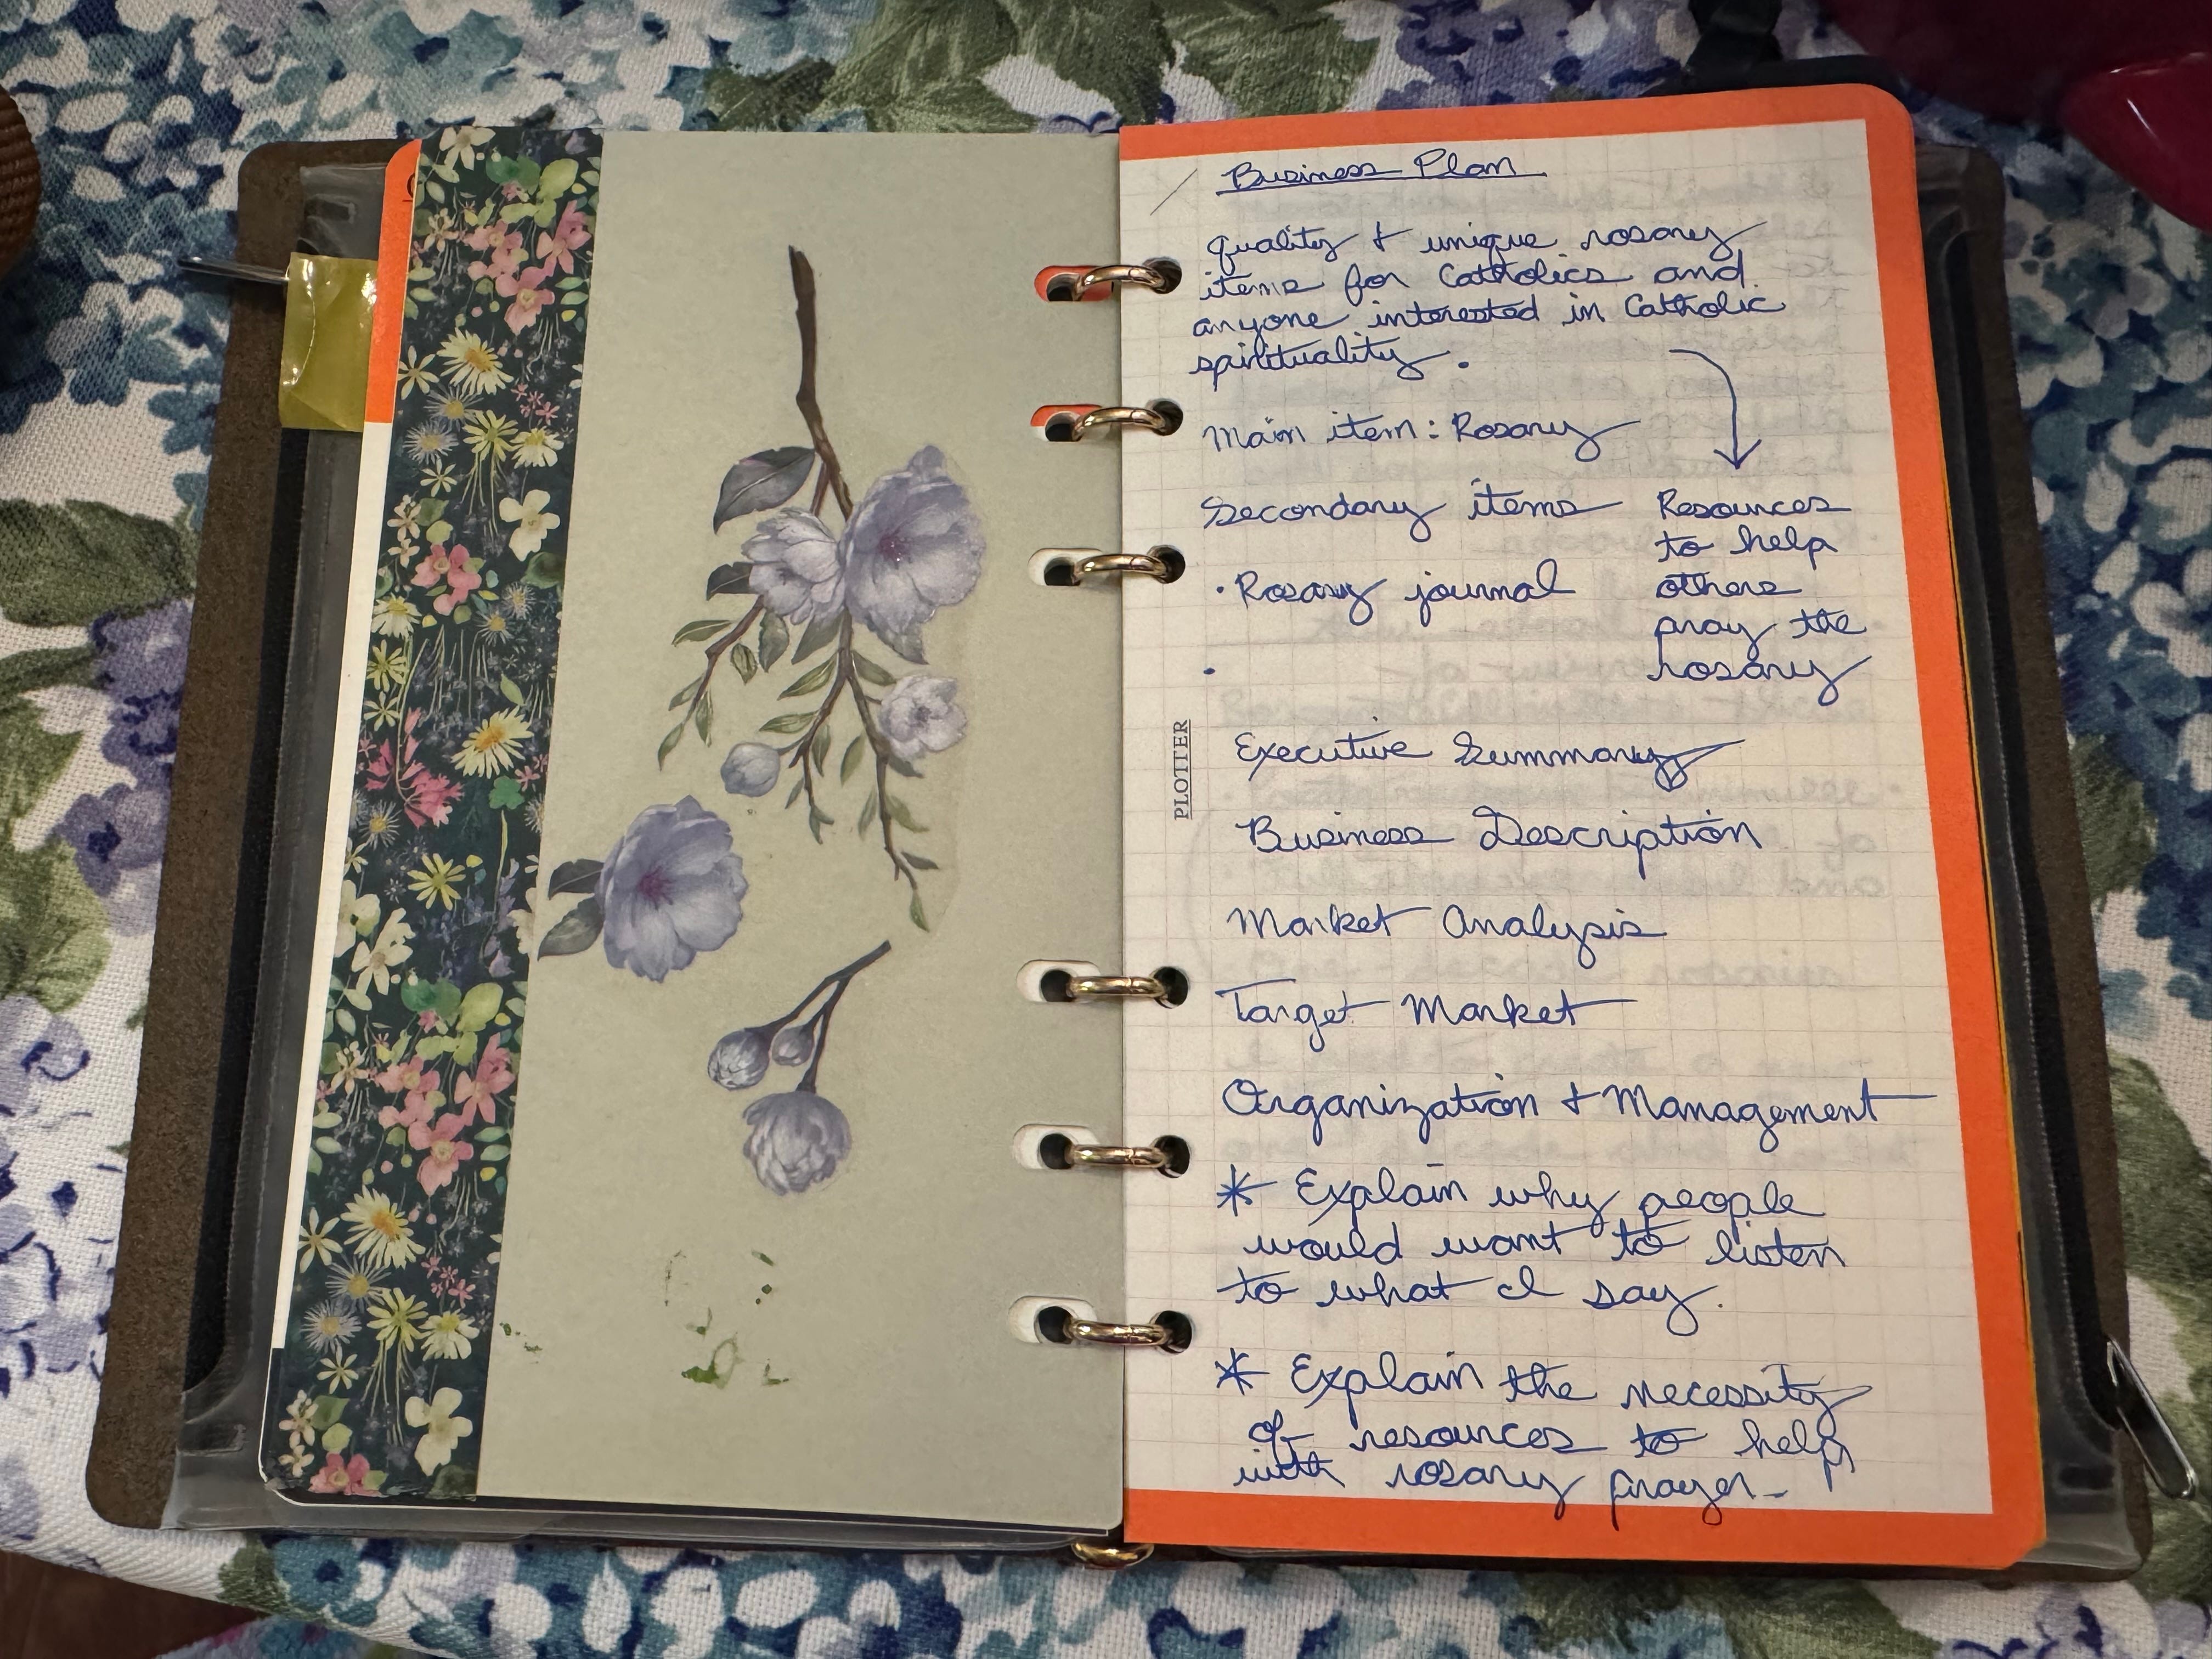 Business Plan
quality + unique rosary
items for Catholics and
anyone interested in Catholic
spirituality.
Main item: Rosary
Secondary items
• Rosary journal
•
Resources
to help
others
pray the
rosary
PLOTTER
Executive Summary
Business Description
Market Analysis
Target Market
Organization + Management
* Explain why people
would want to listen
to what I say.
* Explain the necessity
of resources to help
with rosary prayer-